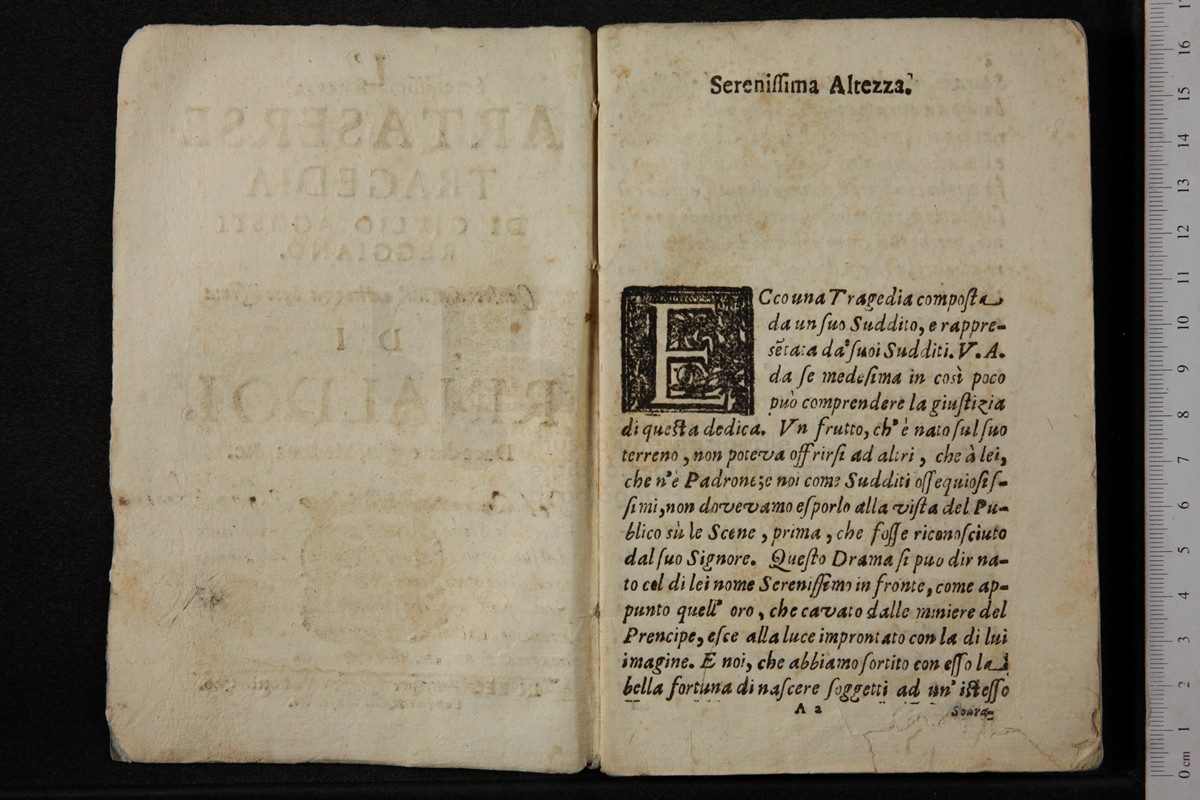 L'
ARTASERSE
TRAGEDIA
DI GIULIO AGOSTI
REGGIANO.
DI
RINALDO I.
Sereniſſima Altezza.
ECco una Tragedia compoſta
da un ſuo Suddito, e rappre-
sẽtata da' ſuoi Sudditi. V. A.
da ſe medeſima in così poco
può comprendere la giuſtizia
di queſta dedica. Vn frutto, ch' è nato ſul ſuo
terreno, non poteva offrirſi ad altri, che à lei,
che n' è Padrone; e noi come Sudditi oſſequioſiſ-
ſimi, non dovevamo eſporlo alla viſta del Pu-
blico sù le Scene, prima, che foſſe riconoſciuto
dal ſuo Signore. Queſto Drama ſi puo dir na-
to col di lei nome Sereniſſimo in fronte, come ap-
punto quell' oro, che cavato dalle miniere del
Prencipe, eſce alla luce improntato con la di lui
imagine. E noi, che abbiamo ſortito con eſſo la
bella fortuna di naſcere ſoggetti ad un' iſteſſo
A 2 Sovra-
0 cm 1 2 3 4 5 6 7 8 9 10 11 12 13 14 15 16 17